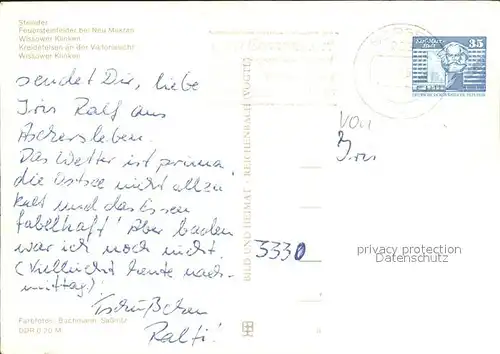 Steinufer
Feuersteinfelder bei Neu Mukran
Wissower Klinken
Kreidefelsen an der Victoriasicht
Wissower Klinken
sendet Dir, liebe
Iris Ralf aus
Aschersleben.
Das Wetter ist prima,
die Ostsee nicht allzu
kalt und das Essen
fabelhaft! Aber baden
war ich noch nicht.
(Vielleicht heute nach-
mittag)!
Tschüßchen
Ralfi!
Farbfotos: Bachmann, Saßnitz
DDR 0.20 M
BILD UND HEIMAT REICHENBACH (VOGTL)
35
von
Iris
5330
privacy protection
Datenschutz